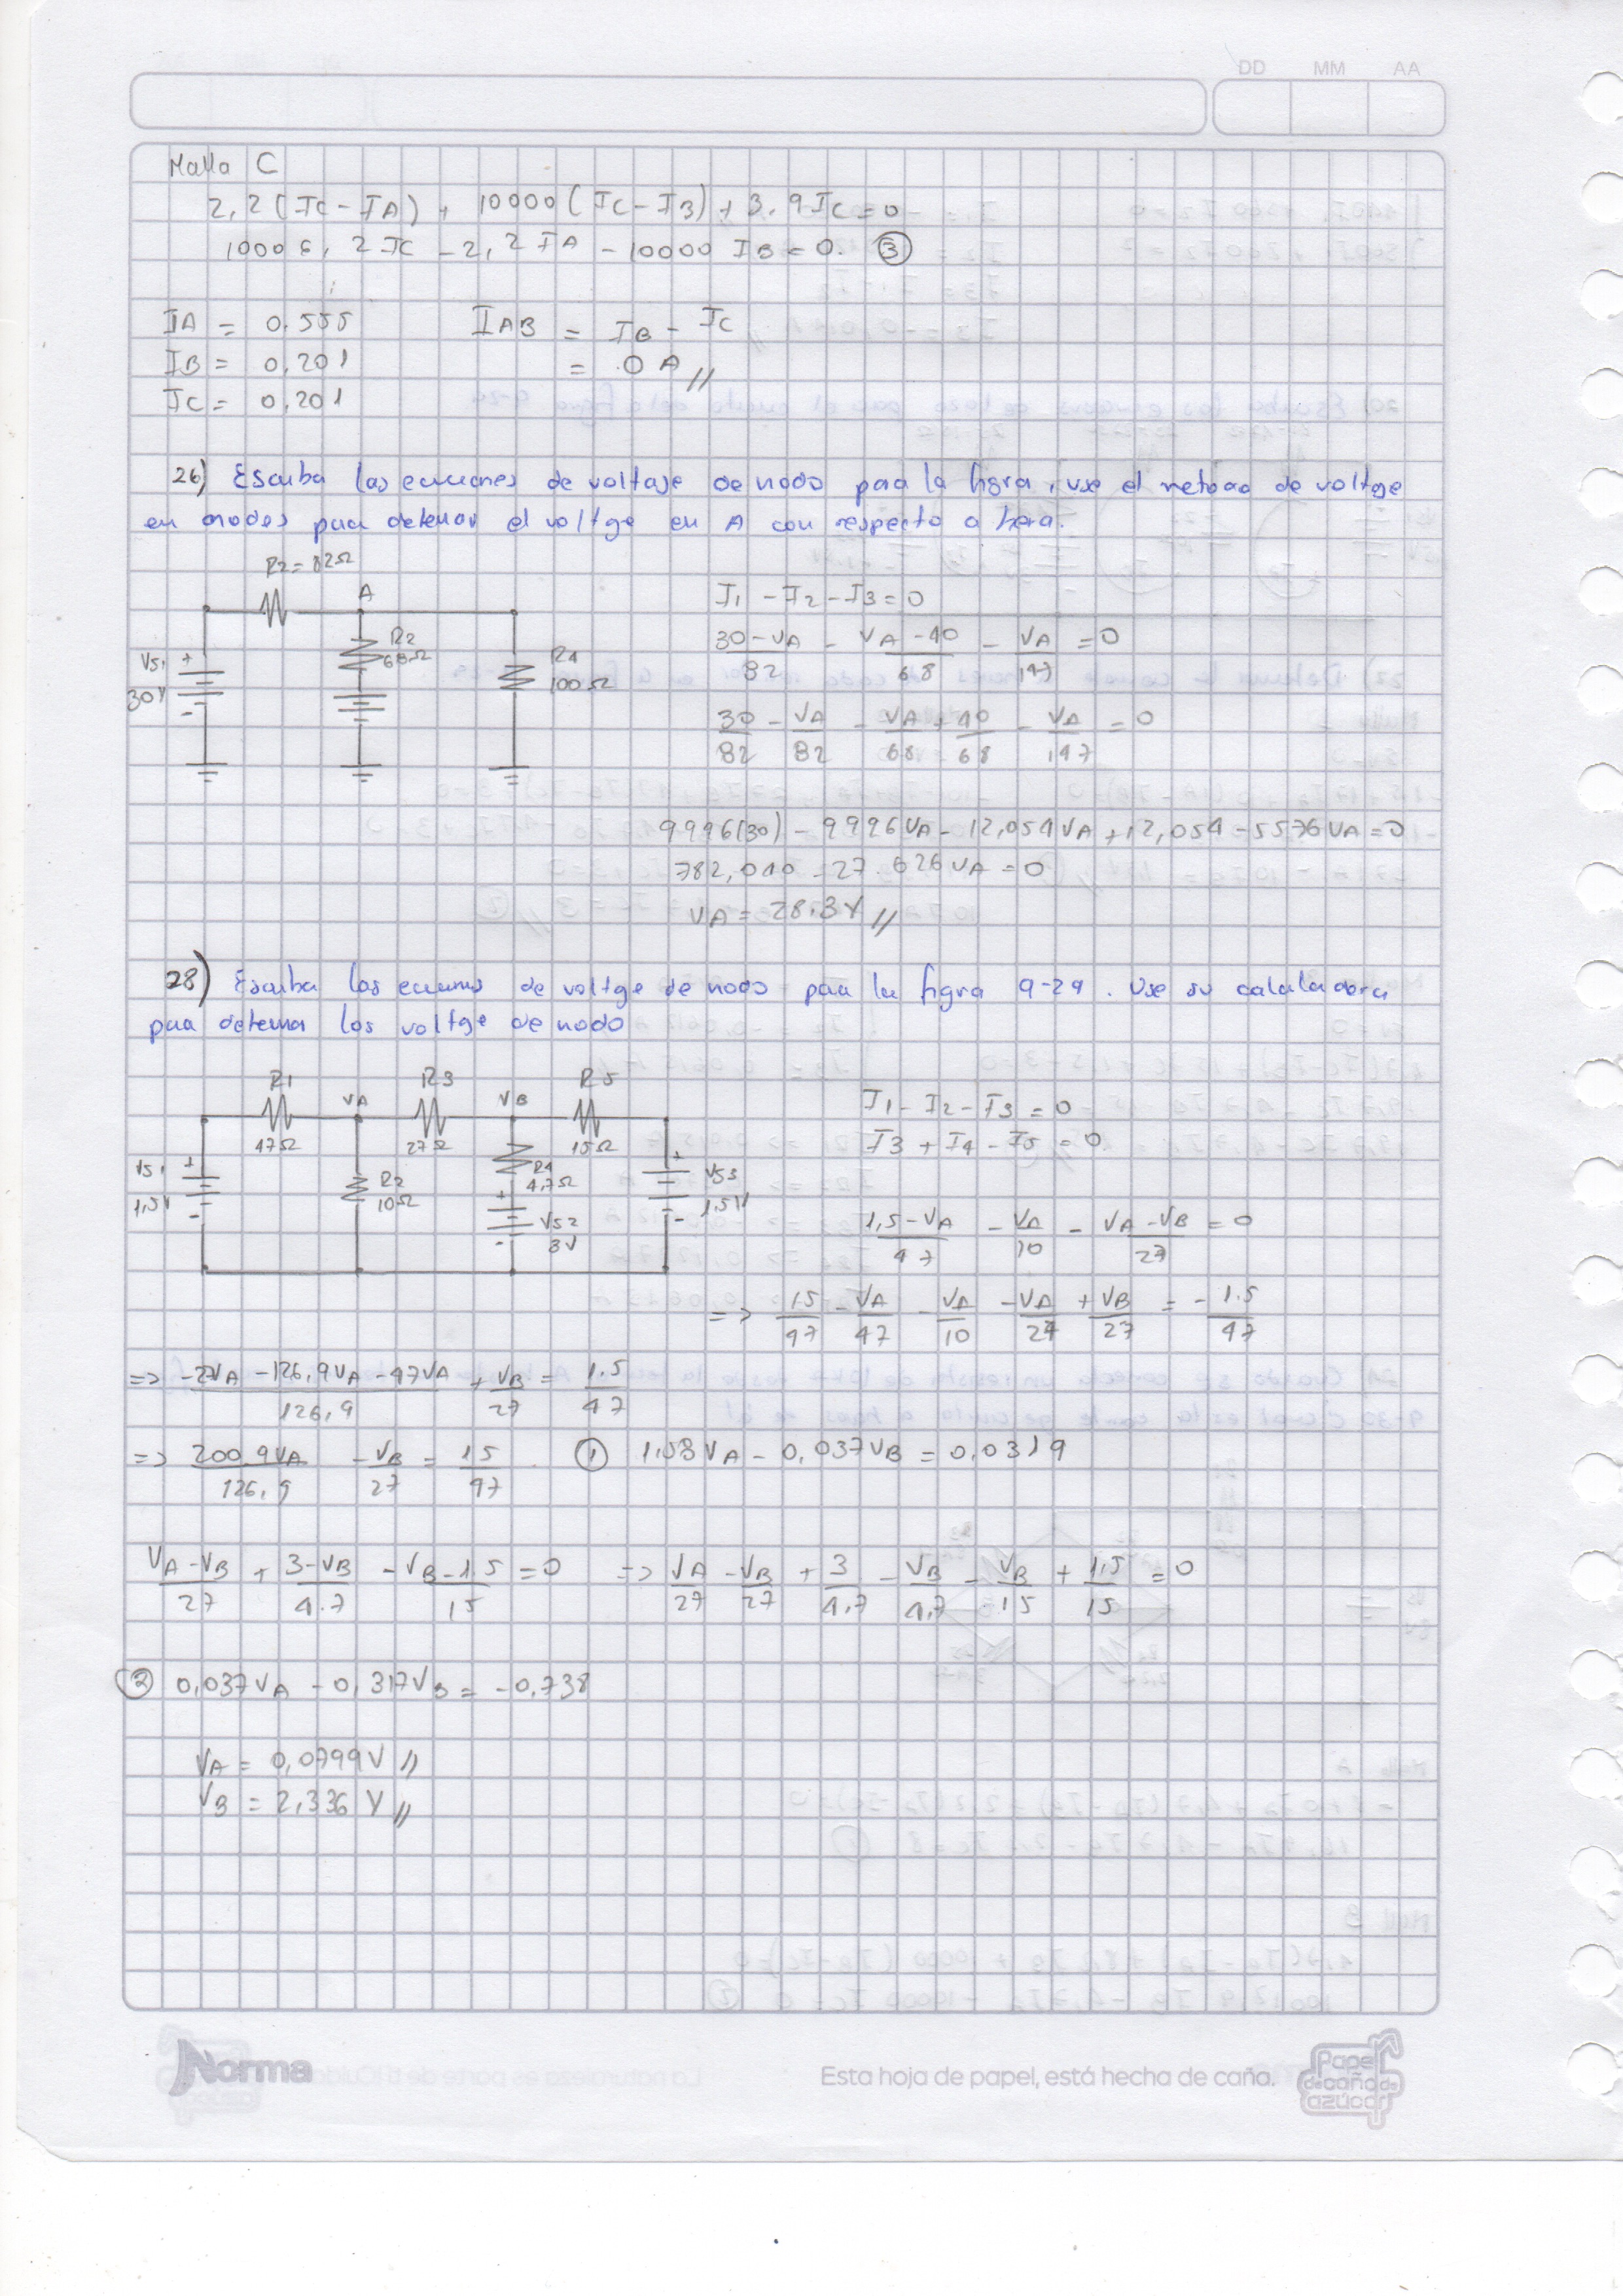 DD MM AA
Malla C
2,2(IC-IA) + 10000(IC-IB) + 3.9IC=0
10006,2IC-2,2IA-10000IB=0. ③
IA = 0.555
IB = 0,201
IC = 0,201
IAB = IB - IC
= .0 A //
26) Escriba las ecuaciones de voltaje de nodo para la figra, use el metodo de voltge
en nodos para determr el voltge en A con respecto a tiera.
R2=82Ω
A
VS1
30V
+
-
R2
68Ω
R4
100Ω
I1 - I2 - I3 = 0
30-VA/82 - VA-40/68 - VA/147 = 0
30/82 - VA/82 - VA/68 + 40/68 - VA/147 = 0
9996(30) - 9996VA - 12,054VA + 12,054 - 5576VA = 0
782,040 - 27.626VA = 0
VA = 28.3V //
28) Escriba las ecuans de voltge de nodo paa la figra 9-29. Use su calculadora
paa deterna los voltge de nodo
R1
47Ω
VA
R3
27Ω
VB
R5
15Ω
VS1
1,5V
+
-
R2
10Ω
R4
4,7Ω
+
VS2
-
3V
+
VS3
1.5V
-
I1 - I2 - I3 = 0
I3 + I4 - I5 = 0
1,5-VA/47 - VA/10 - VA-VB/27 = 0
=> 1.5/47 - VA/47 - VA/10 - VA/27 + VB/27 = - 1.5/47
=> -27VA-126,9VA-47VA/126,9 + VB/27 = 1.5/47
=> 200.9VA/126,9 - VB/27 = 1.5/47 ① 1.58VA - 0,037VB = 0,0319
VA-VB/27 + 3-VB/4.7 - VB-1.5/15 = 0 => VA/27 - VB/27 + 3/4,7 - VB/4,7 - VB/15 + 1,5/15 = 0
② 0,037VA - 0,317VB = -0,738
VA = 0,0799V //
VB = 2,336 V //
Norma
Esta hoja de papel, está hecha de caña.
Papel de caña de azúcar